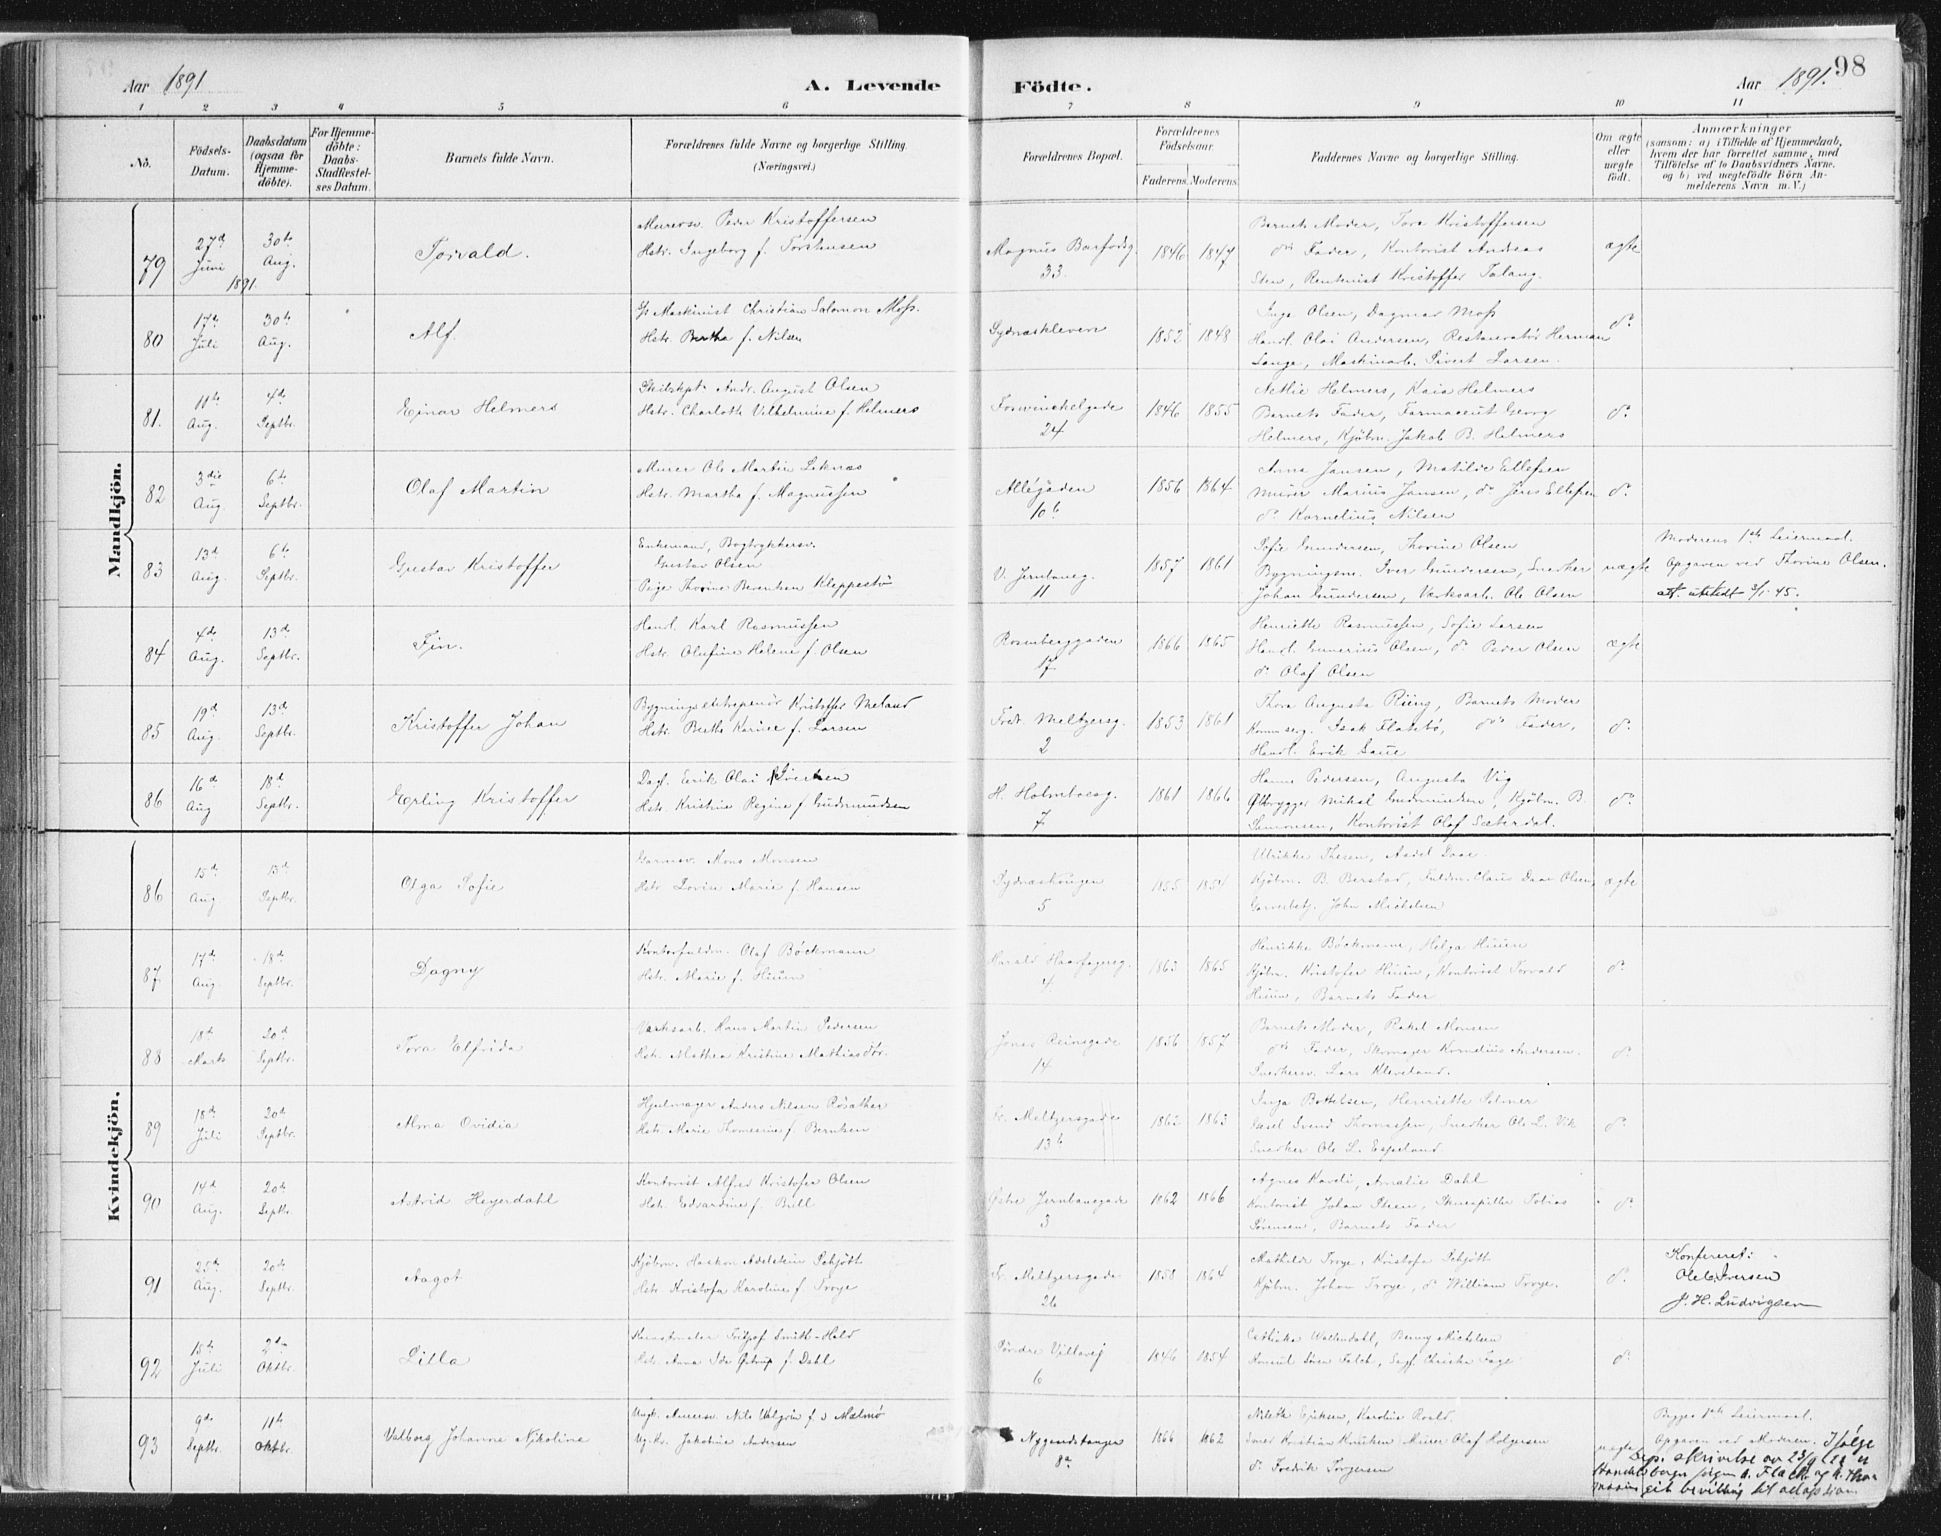 98
Aar 1891 A. Levende Födte. Aar 1891.
1 2 3 4 5 6 7 8 9 10 11
No.
Födsels-Datum.
Daabsdatum (ogsaa for Hjemmedöbte).
For Hjemmedöbte: Daabs-Stadfæstelses Datum.
Barnets fulde Navn.
Forældrenes fulde Navne og borgerlige Stilling.
(Næringsvei.)
Forældrenes Bopæl.
Forældrenes Födselsaar.
Faderens. Moderens.
Faddernes Navne og borgerlige Stilling.
Om ægte eller uægte födt.
Anmærkninger
(saasom: a) i Tilfælde af Hjemmedaab, hvem der har forrettet samme, med Tilföielse af to Daabsvidners Navne, og b) ved uægtefödte Börn Anmelderens Navn m. V.)
Mandkjön.
79 27d Juni 1891 30te Aug. Torvald.
Murersv. Peder Kristoffersen
Hstr. Ingeborg f. Torstensen
Magnus Barfodsg. 33. 1846 1847
Barnets Moder, Tora Kristoffersen
do Fader, Kontorist Andreas
Sten, Rentenist Kristoffer Talang.
ægte
80 17de Juli 30te Aug. Alf.
Maskinist Christian Salomon Moss.
Hstr. Bertha f. Nilsen
Sydnæskleven 1852 1848
Inga Olsen, Dagmar Moss
Handl. Olai Andersen, Restauratör Herman
Lange, Maskinarb. Sivert Larsen.
do
81. 11te Aug. 4de Septbr. Ejnar Helmers
Skibskpt. Andr. August Olsen
Hstr. Charlotte Vilhelmine f. Helmers
Foswinckelgade 24 1846 1855
Nethie Helmers, Kaia Helmers
Barnets Fader, Farmaceut Georg
Helmers, Kjöbm. Jakob B. Helmers
do
82 3die Aug. 6te Septbr. Olaf Martin
Murer Ole Martin Seknæs
Hstr. Martha f. Magnussen
Allégaden 10b 1856 1864
Anna Jansen, Matilde Ellefsen
Murer Marius Jansen, do Jens Ellefsen
do Kornelius Nilsen
do
83 13d Aug. 6te Septbr. Gustav Kristoffer
Enkemand, Bogtrykkersv.
Gustav Olsen
Pige Thorine Berentsen Kleppestö
V. Jernbaneg. 11 1857 1861
Sofie Gundersen, Thorine Olsen
Bygningssn. Iver Gundersen, Snedker
Johan Gundersen, Værksarb. Ole Olsen
uægte
Moderens 1ste Leiermaal.
Opgaven ved Thorine Olsen.
att. utstedt 2/1-45.
84 4de Aug. 13d Septbr. Fin.
Handl. Karl Rasmussen
Hstr. Olufine Helene f. Olsen
Rosenberggaden 17 1866 1865
Henriette Rasmussen, Sofie Larsen
Handl. Gunerius Olsen, do Peder Olsen
do Olaf Olsen
ægte
85 19d Aug. 13d Septbr. Kristoffer Johan
Bygningsentrepenör Kristoffer Meland
Hstr. Berthe Karine f. Larsen
Fredr. Meltzersg. 2 1853 1861
Thora Augusta Riing, Barnets Moder
Isak Flatebö, do Fader,
Handl. Erik Saue
do
86 16d Aug 18d Septbr. Erling Kristoffer
Dagl. Erik Olai Iversen
Hstr. Kristine Regine f. Gudmundsen
H. Holmboesg. 7 1861 1866
Hanna Pedersen, Augusta Vig
Ølbrygger Mikal Gudmundsen, Kjöbm. B.
Samonsen, Kontorist Olaf Sæterdal.
do
Kvindekjön.
86 15de Aug 13d Septbr. Olga Sofie
Garversv. Mons Monsen
Hstr Lovise Marie f. Hansen
Sydnæshaugen 5 1855 1854
Ulrikke Thesen, Andel Daae
Kjöbm. B. Berstad, Fuldm. Claus Daae Olsen,
Garverbetj. John Mickelsen
ægte
87 17de Aug. 18d Septbr. Dagny
Kontorfuldm. Olaf Böckmann
Hstr. Marie f. Huun
Harald Haarfagersg. 4 1863 1865
Henrikke Böckmann, Helga Huun
Kjöbm. Kristofer Huun, Kontorist Torvald
Huun, Barnets Fader
do
88 18de Marts 20d Septbr. Tora Elfrida
Værksarb. Hans Martin Pedersen
Hstr. Mathea Kristine Mathiasdtr.
Jonas Reinsgade 14 1856 1857
Barnets Moder, Rakel Monsen
do Fader, Skomager Kornelius Andersen.
Snedkersv. Lars Kleveland.
do
89 18de Juli 20d Septbr. Alma Ovidia
Hjulmager Anders Nilsen Rösather
Hstr. Marie Thomasine f. Berntsen
Fr. Meltzersgade 13b 1862 1863
Inga Bottelsen, Henriette Solner
Svend Thomassen, Snedker Ole L. Vik
Snedker Ole L. Espeland.
do
90 14d Aug. 20de Septbr. Astrid Heyerdahl
Kontorist Alfred Kristofer Olsen
Hstr. Edvardine f. Brill
Østre Jernbanegade 3 1862 1866
Agnes Kavli, Amalie Dahl
Kontorist Johan Steen, Skuespiller Tobias
Sörensen, Barnets Fader
do
91 25de Aug. 20de Septbr. Aagot
Kjöbm. Haakon Adelsten Schjött
Hstr. Kristofa Karoline f. Troye
Fr. Meltzersgade 26 1858 1864
Mathilde Troye, Kristofa Schjött
Kjöbm. Johan Troye, do William Troye.
do
Konfereret:
Ole C. Iversen
J. H. Ludvigsen
92 15de Juli 2den Oktbr. Lilla
Kunstmaler Fritjof Smith-Hald
Hstr. Anna Ida Gitrup f. Dahl
Söndre Villavej 6 1846 1854
Cathinka Wallendahl, Benny Michelsen
Konsul Sören Falck, Sagf. Christen Fage
do
93 9de Septbr. 11te Oktbr. Valborg Johanne Nikoline
Ungk. Murersv. Nils Valgrin f. i Malmö
Ug.Kv. Jakobine Andersen
Nygaardstangen 8a 1866 1862
Nileth Eriksen, Karoline Roald.
Smed Kristian Knutsen, Murer Olaf Holgersen
do Fredrik Torgersen
uægte
Begges 1ste Leiermaal.
Opgaven ved Moderen. Ifölge
Dep. skrivelse av 23/9
git bevilling til adoption